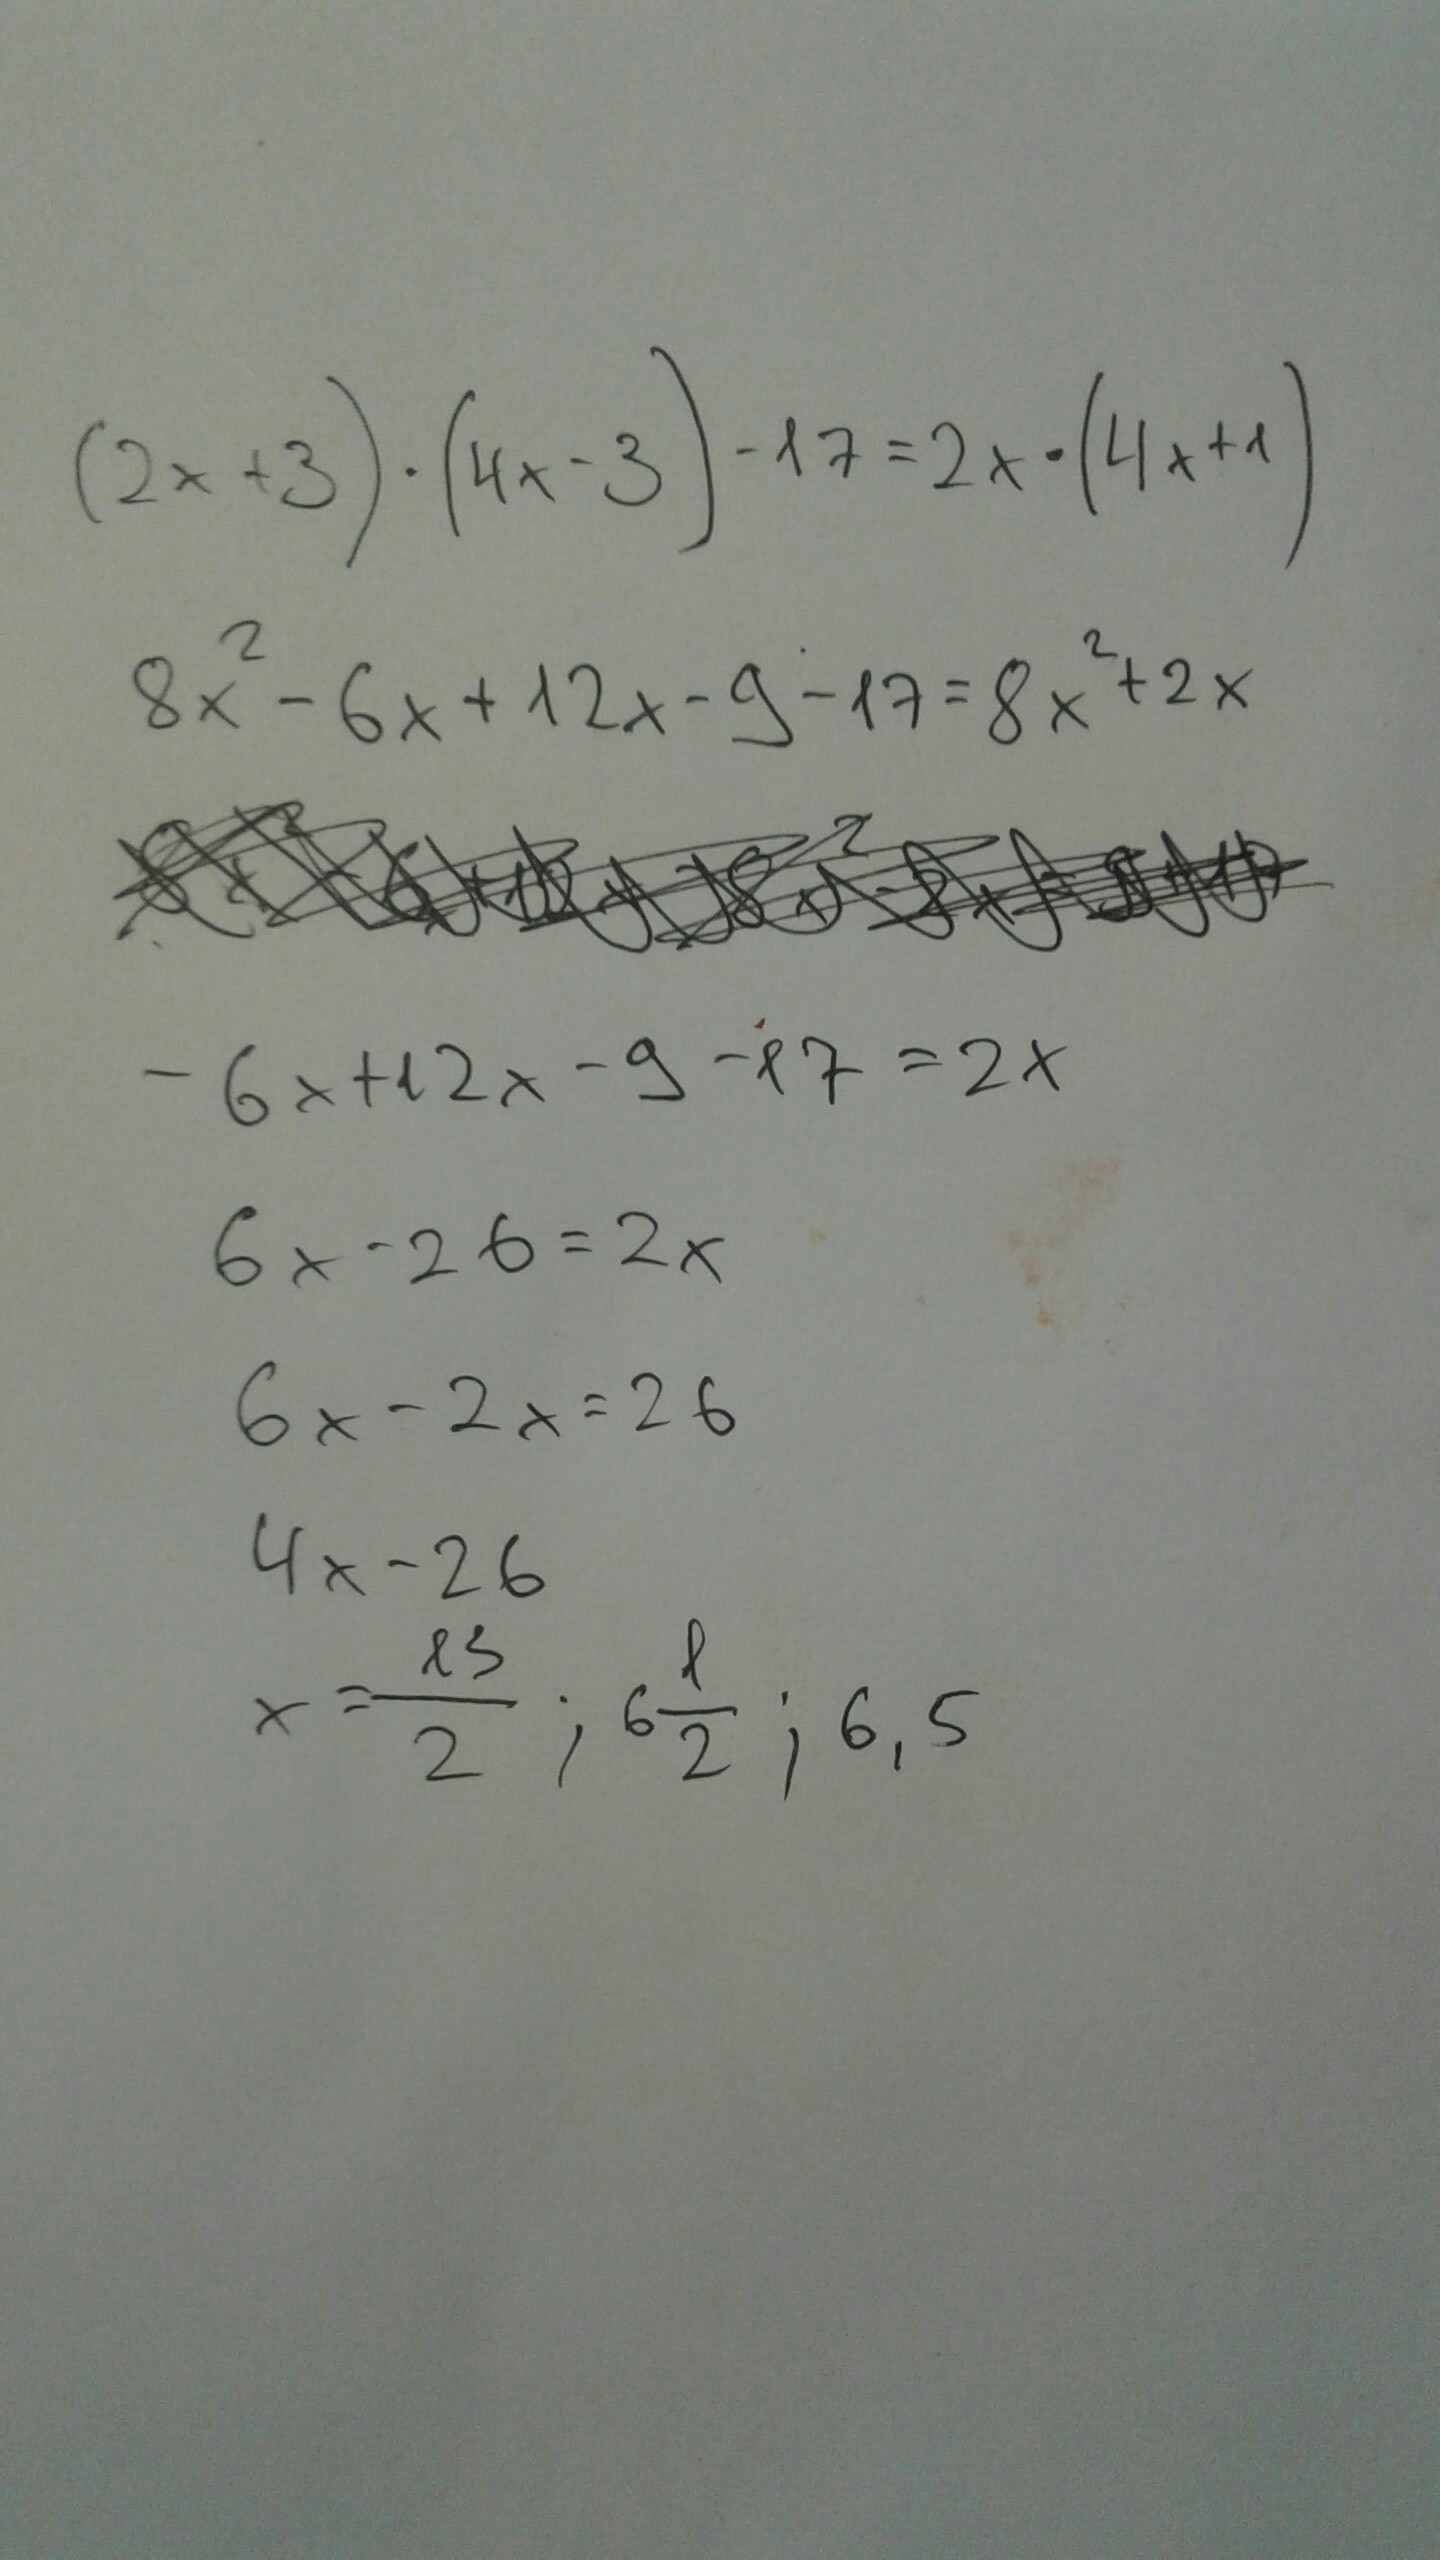 (2x+3)·(4x-3)-17=2x·(4x+1)
8x²-6x+12x-9-17=8x²+2x
-6x+12x-9-17=2x
6x-26=2x
6x-2x=26
4x-26
x=13/2; 6 1/2; 6,5